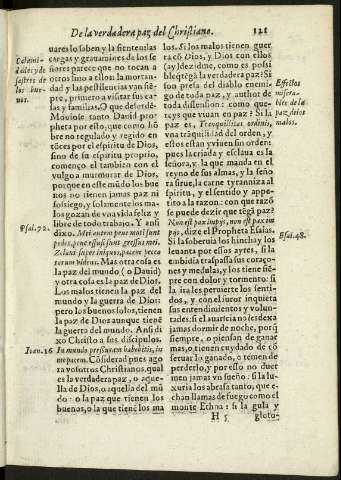 De la verdadera paz del Christiano. 121
Calamidades y desastres de los buenos.
uares lo saben y la sienten: las
cargas y grauamines de los señores
parece que no tocan a
otros sino a ellos: la mortandad
y las pestilencias van siẽpre,
primero a visitar sus casas
y familias.
Mouiose tanto Dauid propheta
por esto, que como hõbre
no regulado y regido en
tõces por el espiritu de Dios,
sino de su espiritu proprio,
començo el tambien con el
vulgo a murmurar de Dios,
porque en este mũdo los buenos
no tienen jamas paz ni
sossiego, y solamente los malos
gozan de vna vida feliz y
libre de todo trabajo. Y ansi
Psal. 72.
dixo. Mei autem pene moti sunt
pedes, pene effusi sunt gressus mei.
Zelaui super iniquos, pacem peccatorum
videns. Mas otra cosa es
la paz del mundo (o Dauid)
y otra cosa es la paz de Dios.
Los malos tienen la paz del
mundo y la guerra de Dios:
pero los buenos solos, tienen
la paz de Dios aunque tienẽ
la guerra del mundo. Ansi dixo
Christo a sus discipulos.
Ioan. 16
In mundo pressuram habebitis, in
me pacem. Cõsiderad pues agora
vosotros Christianos, qual
es la verdadera paz, o aquella
de Dios, o aquella del mũdo:
o la paz que tienen los
buenos, o la que tienẽ los malos.
Si los malos tienen guerra
cõ Dios, y Dios con ellos
(ay!) dezidme, como es possible
q̃ tẽgã la verdadera paz? Si
son presa del diablo enemigo
de toda paz, y author de
toda dissension: como quereys
que viuan en paz? Si la
Effectos miserables de la paz de los malos.
paz es, Tranquillitas ordinis,
vna trãquilidad del orden, y
estos estan y viuen sin orden:
pues la criada y esclaua es la
señora, y la que manda en el
reyno de sus almas, y la señora
sirue, la carne tyranniza al
espiritu, y el sentido y appetito
a la razon: con que razõ
se puede dezir que tẽgã paz?
Non est pax impijs, non est pax impijs,
dize el Propheta Esaias.
Esai. 48.
Si la soberuia los hincha y los
leuanta por essos ayres, si la
embidia traspassa sus coraçones
y medulas, y los tiene siẽpre
con dolor y tormento: si
la ira les peruierte los sentidos,
y con el furor inquieta
sus entendimientos y voluntades:
si el auaricia no les dexa
jamas dormir de noche, porq̃
siempre, o piensan de ganar
mas, o tienen cuydado de cõseruar
lo ganado, o temen de
perderlo, y por esso no duermen
jamas vn sueño: si la luxuria
los abrasa tanto, que echan
llamas de fuego como el
monte Ethna: si la gula y
H 5 gloto-